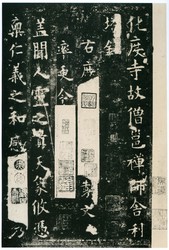 化度寺故僧邕禪師舍利
塔銘
右庶
率更令
蓋聞人靈之貴天象攸憑
稟仁義之和感
乃